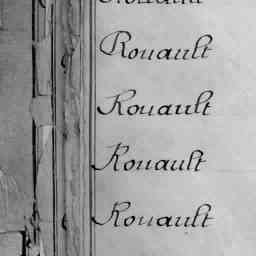 Rouault
Rouault
Rouault
Rouault
Rouault